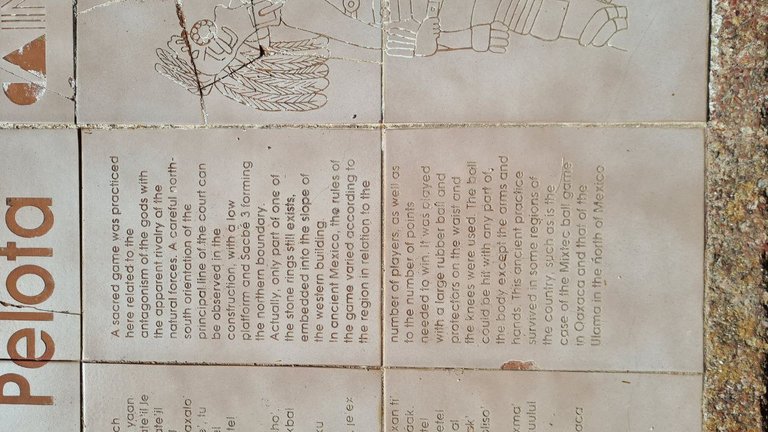 Pelota
A sacred game was practiced
here related to the
antagonism of the gods with
the apparent rivalry of the
natural forces. A careful north-
south orientation of the
principal line of the court can
be observed in the
construction, with a low
platform and Sacbé 3 forming
the northern boundary.
Actually, only part of one of
the stone rings still exists,
embedded into the slope of
the western building.
In ancient Mexico, the rules of
the game varied according to
the region in relation to the
number of players, as well as
to the number of points
needed to win. It was played
with a large rubber ball and
protectors on the waist and
the knees were used. The ball
could be hit with any part of,
the body except the arms and
hands. This ancient practice
survived in some regions of
the country, such as is the
case of the Mixtec ball game
in Oaxaca and that of the
Ulama in the north of Mexico